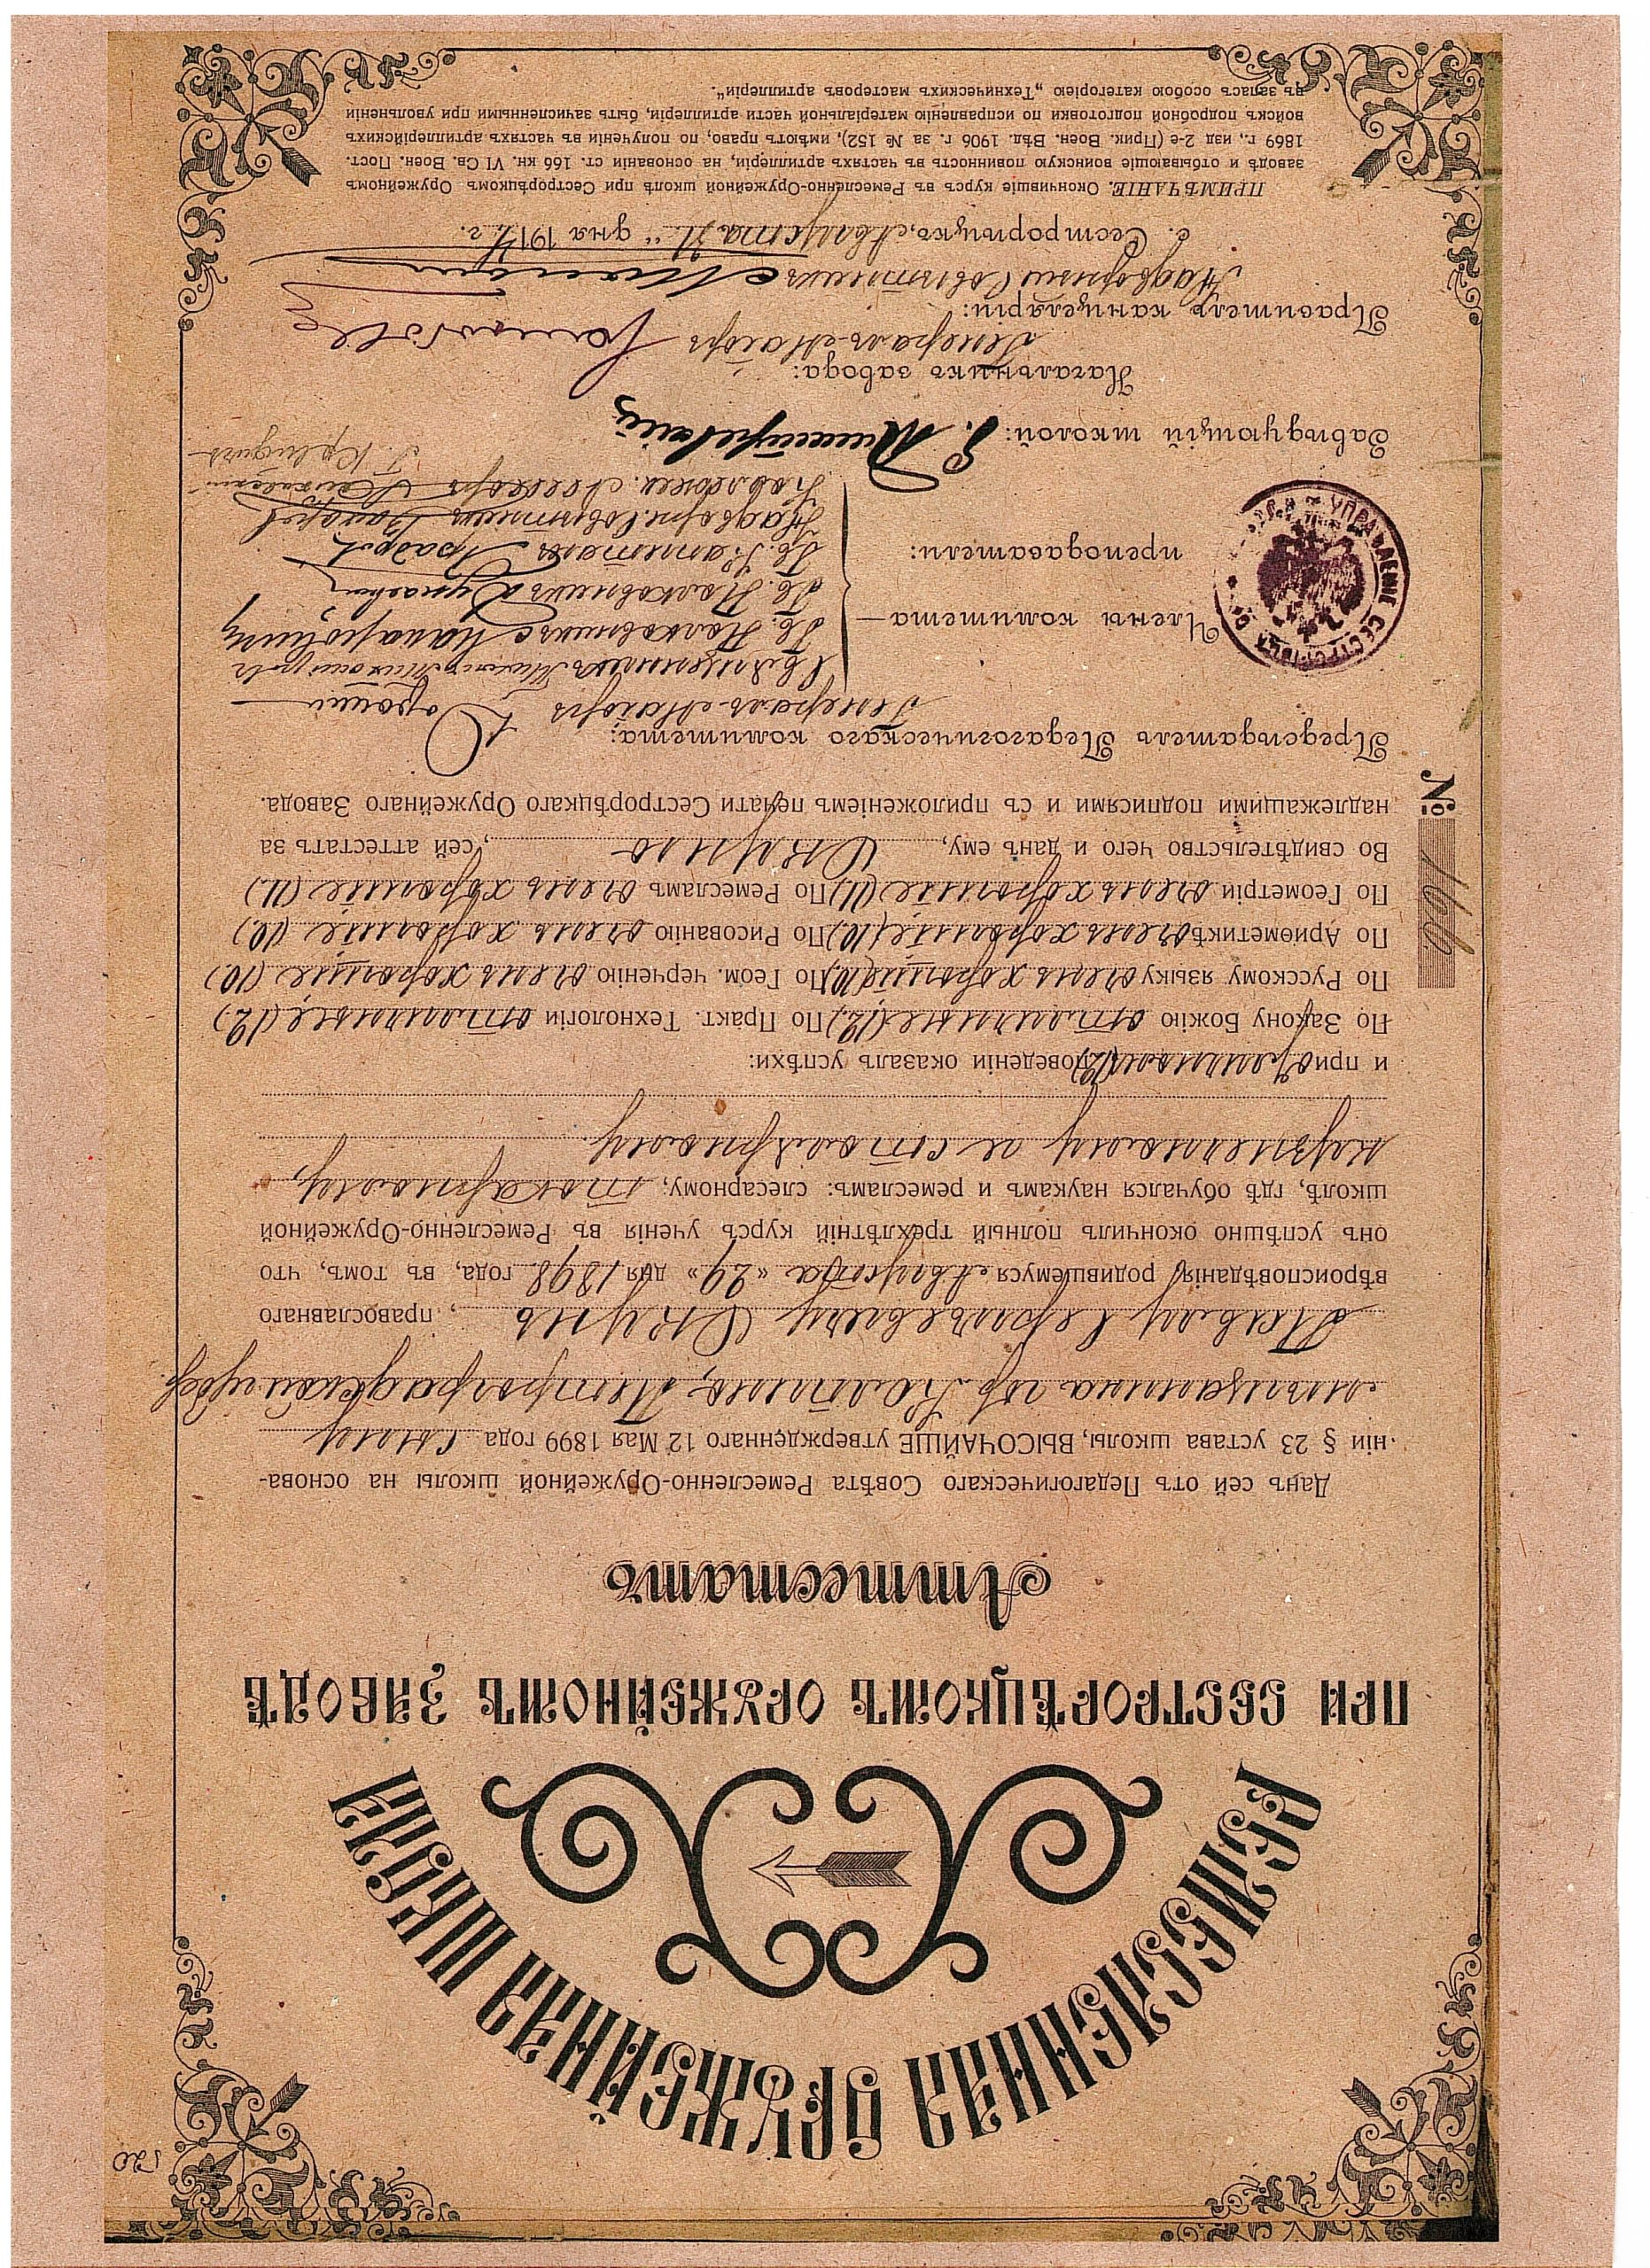 РЕМЕСЛЕННАЯ ОРУЖЕЙНАЯ ШКОЛА
ПРИ СЕСТРОРѢЦКОМЪ ОРУЖЕЙНОМЪ ЗАВОДѢ
Аттестатъ
Данъ сей отъ Педагогическаго Совѣта Ремесленно-Оружейной школы на основа-
ніи § 23 устава школы, ВЫСОЧАЙШЕ утвержденнаго 12 Мая 1899 года сыну
мѣщанина гор. Колпино, Петроградской губер.
Павлу Сергѣевичу Скунь, православнаго
вѣроисповѣданія, родившемуся Августа «29» дня 1898 года, въ томъ, что
онъ успѣшно окончилъ полный трехлѣтній курсъ ученія въ Ремесленно-Оружейной
школѣ, гдѣ обучался наукамъ и ремесламъ: слесарному, токарному,
кузнечному и столярному.
и при отличномъ (12) поведеніи оказалъ успѣхи:
По Закону Божію отличные (12.) По Практ. Технологіи отличные (12.)
По Русскому языку очень хорошіе (10.) По Геом. черченію очень хорошіе (10.)
По Ариѳметикѣ очень хорошіе (10.) По Рисованію очень хорошіе (10.)
По Геометріи очень хорошіе (11.) По Ремесламъ очень хорошіе (11.)
Во свидѣтельство чего и данъ ему, Скуню, сей аттестатъ за
надлежащими подписями и съ приложеніемъ печати Сестрорѣцкаго Оружейнаго Завода.
№ 166
Предсѣдатель Педагогическаго комитета:
Генералъ-Маіоръ
Члены комитета—
преподаватели:
Священникъ
Гв. Полковникъ
Гв. Полковникъ
Гв. Капитанъ
Надворн. Совѣтникъ
Коллежск. Ассесоръ
Завѣдующій школой:
Начальникъ завода:
Генералъ-Маіоръ
Правитель канцеляріи:
Надворный Совѣтникъ
с. Сестрорѣцкъ, „Августа 31" дня 1917 г.
ПРИМѢЧАНІЕ. Окончившіе курсъ въ Ремесленно-Оружейной школѣ при Сестрорѣцкомъ Оружейномъ
заводѣ и отбывающіе воинскую повинность въ частяхъ артиллеріи, на основаніи ст. 166 кн. VI Св. Воен. Пост.
1869 г., изд. 2-е (Прик. Воен. Вѣд. 1906 г. за № 152), имѣютъ право, по полученіи въ частяхъ артиллерійскихъ
войскъ подробной подготовки по исправленію матеріальной части артиллеріи, быть зачисленными при увольненіи
въ запасъ особою категоріею „Техническихъ мастеровъ артиллеріи".